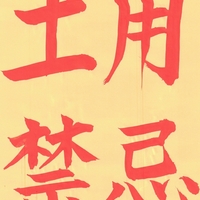 土用
禁忌